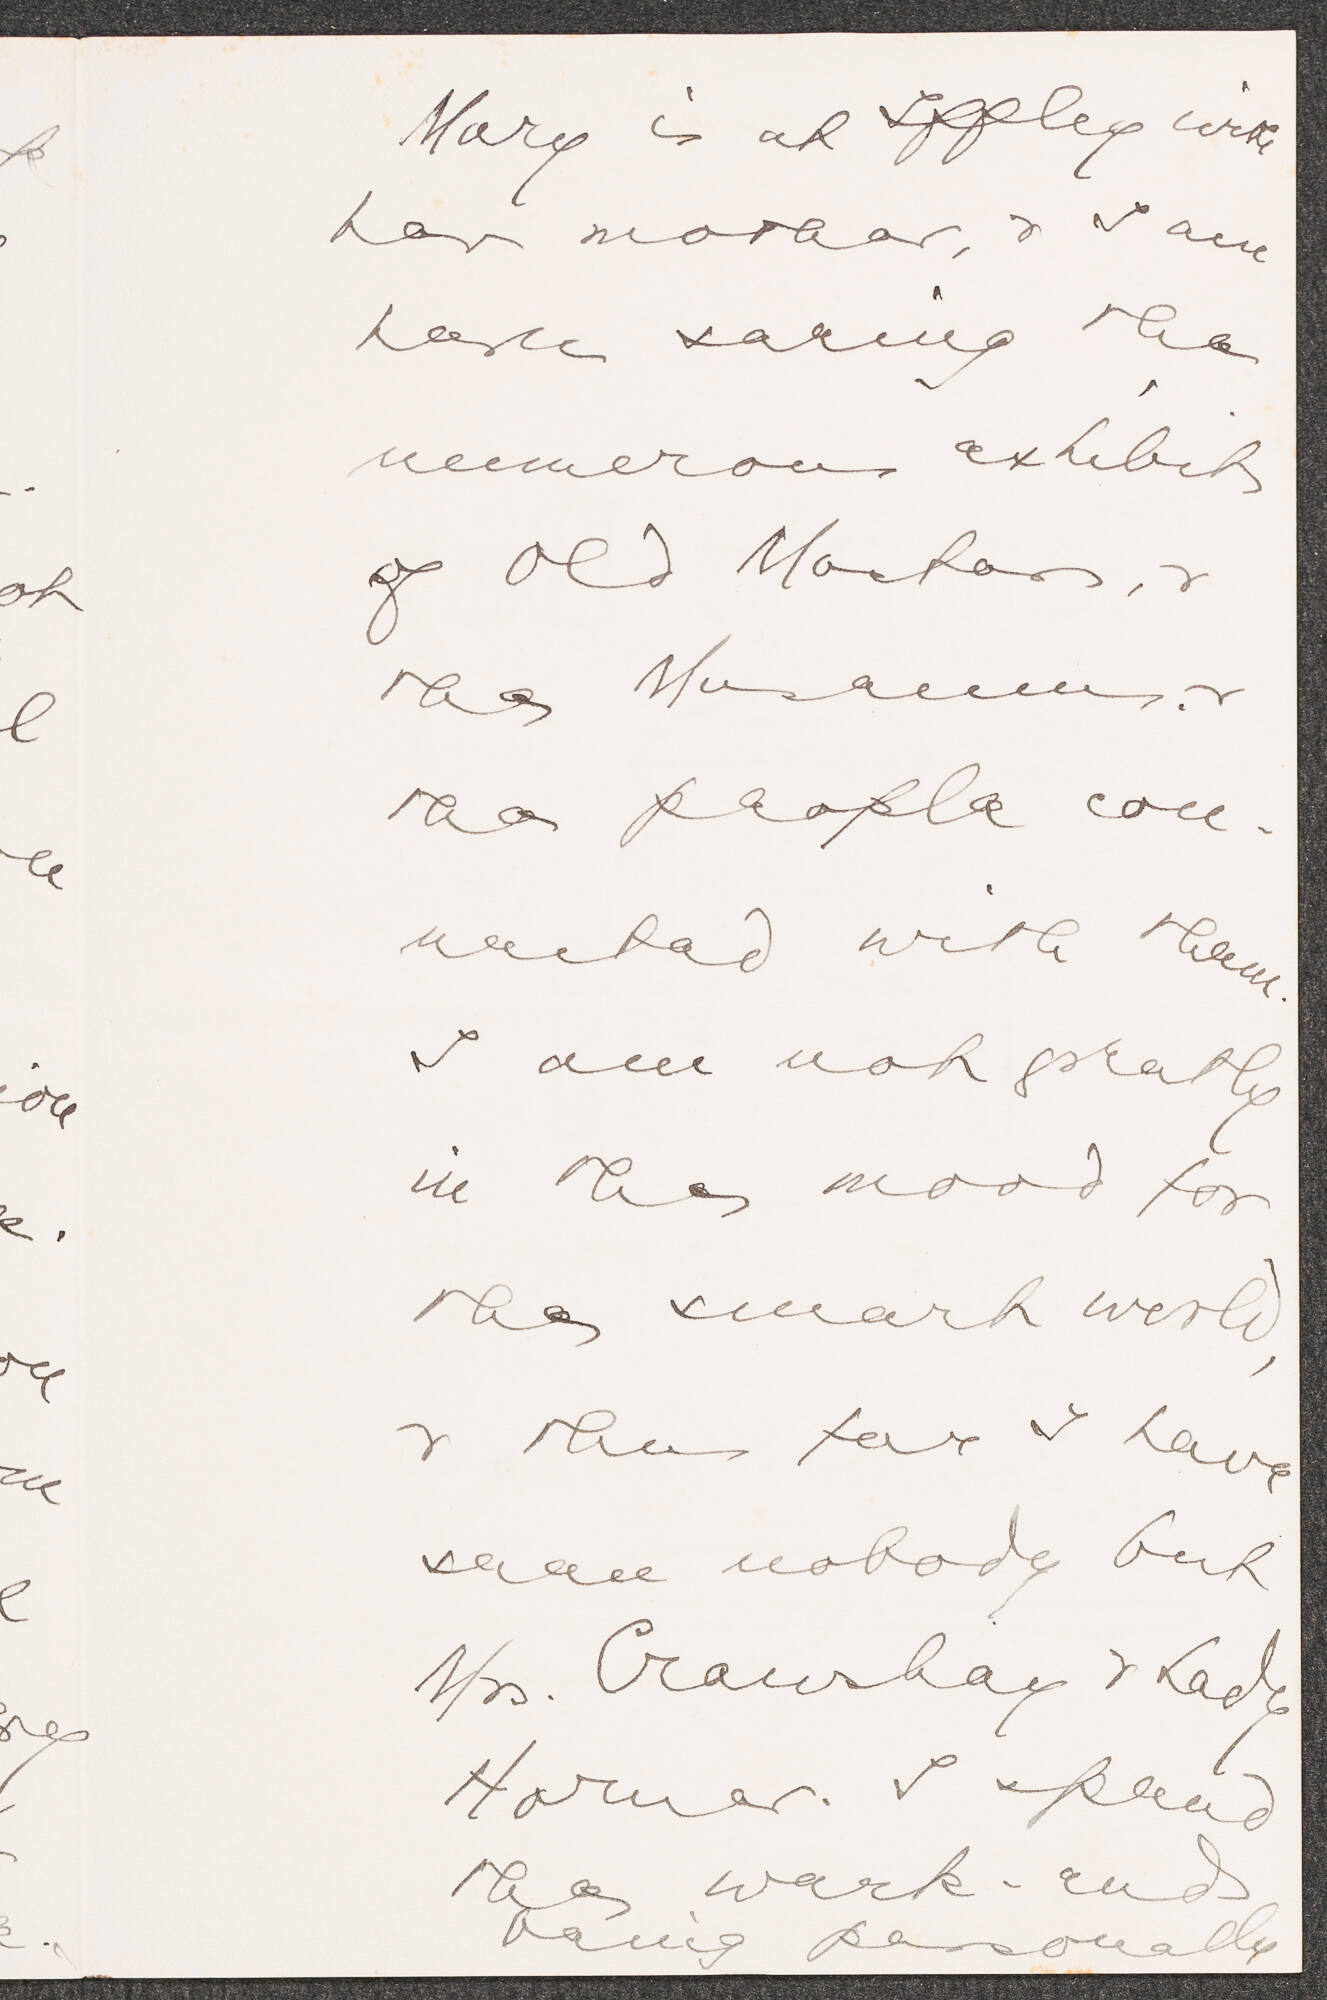 Mary is at Iffley with
her mother, & I am
here seeing the
numerous exhibits
of Old Masters, &
the Museums &
the people con-
nected with them.
I am not greatly
in the mood for
the smart world,
& thus far I have
seen nobody but
Mrs. Crawshay & Lady
Horner. I spend
the week-ends
being personally